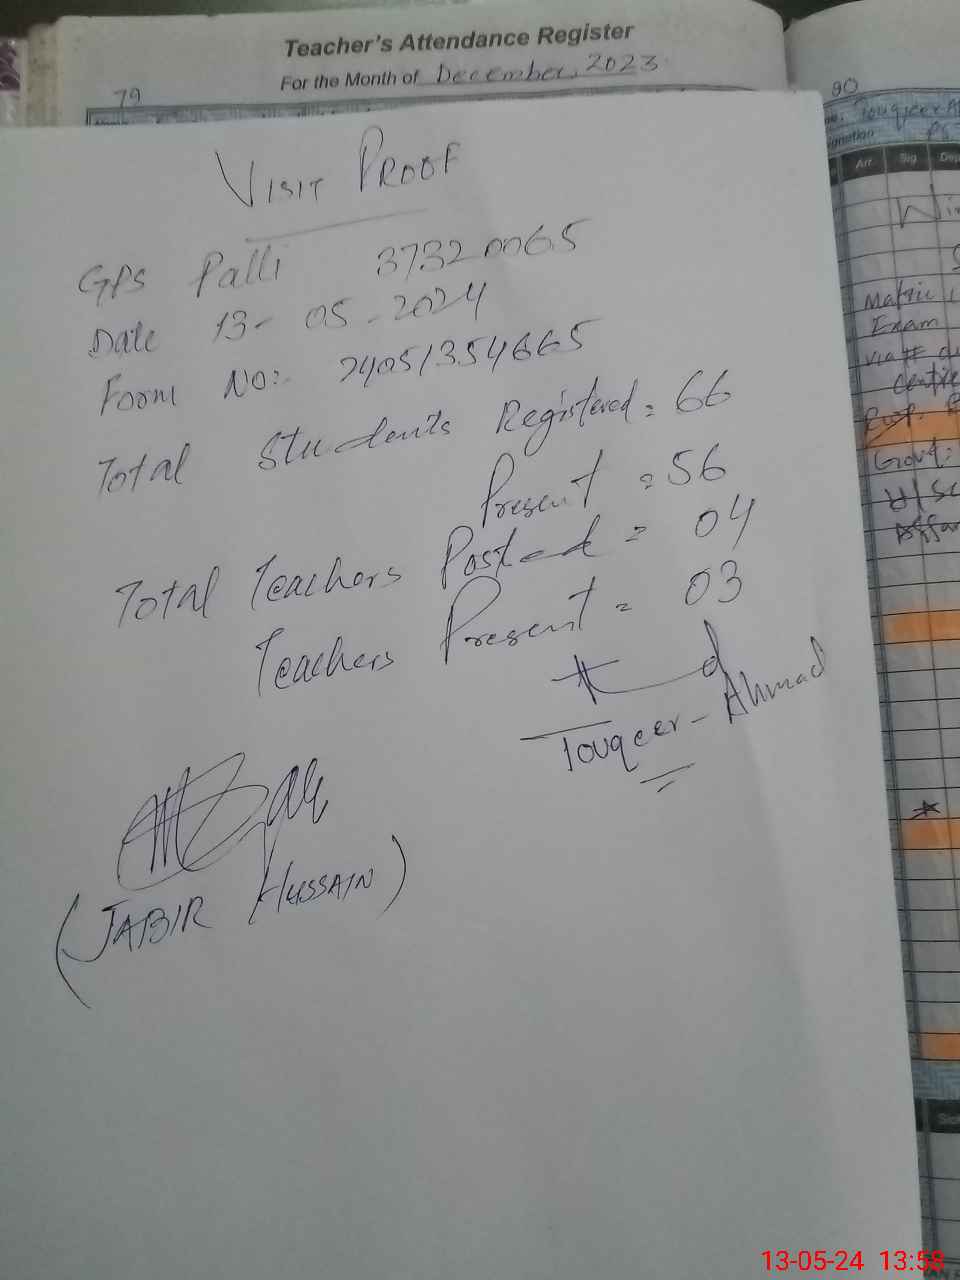 Teacher's Attendance Register
For the Month of December, 2023
79
VISIT PROOF
GPS Palli 37320065
Date 13-05-2024
Form No:. 24051354665
Total Students Registered = 66
Present = 56
Total Teachers Posted = 04
Teachers Present = 03
Touqeer-Ahmad
(JABIR HUSSAIN)
90
Arr Sig Dep
Matric
Exam
Centre
Govt:
13-05-24 13:58